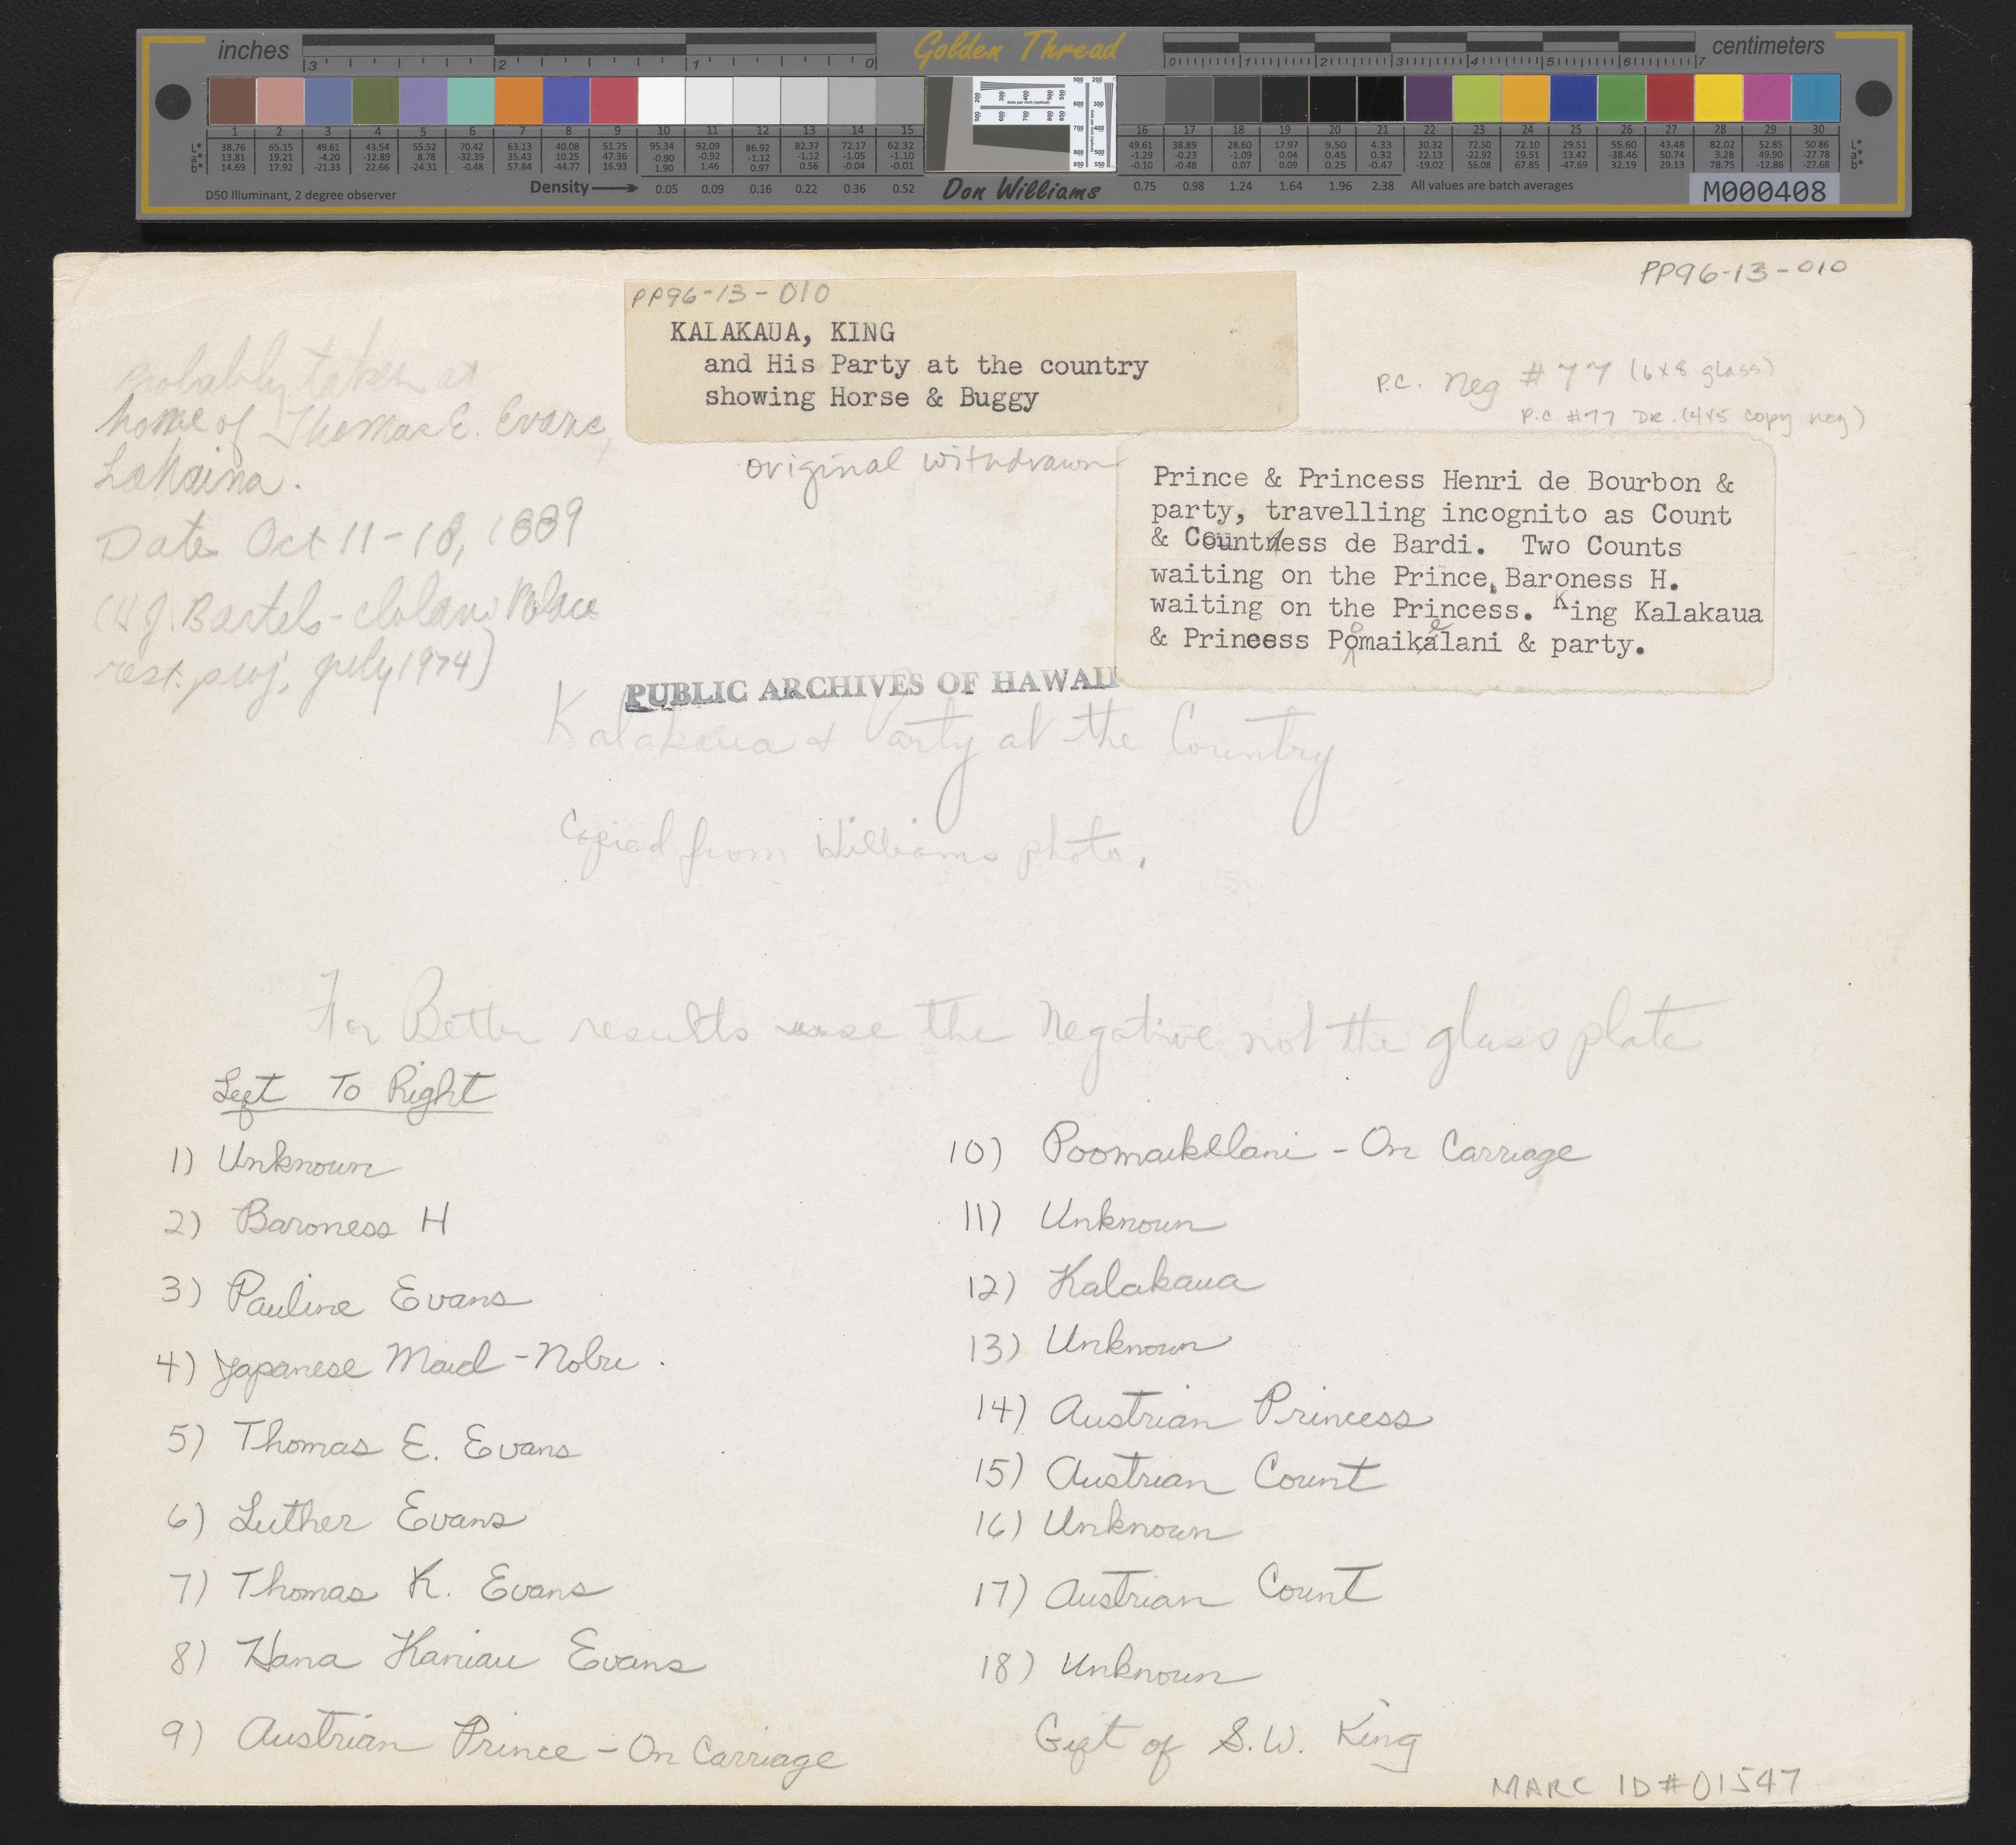 inches
Golden Thread
centimeters
3 2 1 0
0 1 2 3 4 5 6 7
1 2 3 4 5 6 7 8 9 10 11 12 13 14 15
16 17 18 19 20 21 22 23 24 25 26 27 28 29 30
L* 38.76 65.15 49.61 43.54 55.52 70.42 63.13 40.08 51.75 95.34 92.09 86.92 82.37 72.17 62.32
a* 13.81 19.21 -4.20 -12.89 8.78 -32.39 35.43 10.25 47.36 -0.90 -0.92 -1.12 -1.12 -1.05 -1.10
b* 14.69 17.92 -21.33 22.66 -24.31 -0.48 57.84 -44.77 16.93 1.90 1.46 0.97 0.56 -0.04 -0.01
49.61 38.89 28.60 17.97 9.50 4.33 30.32 72.50 72.10 29.51 55.60 43.48 82.02 52.85 50.86 L*
-1.29 -0.23 -1.09 0.04 0.45 0.32 22.13 -22.92 19.51 13.42 -38.46 50.74 3.28 49.90 -27.78 a*
-0.10 -0.48 0.07 0.09 0.25 -0.47 -19.02 56.08 67.85 -47.69 32.19 29.13 78.75 -12.86 -27.68 b*
D50 Illuminant, 2 degree observer
Density 0.05 0.09 0.16 0.22 0.36 0.52
Don Williams
0.75 0.98 1.24 1.64 1.96 2.38 All values are batch averages
M000408
PP96-13-010
PP96-13-010
KALAKAUA, KING
and His Party at the country
showing Horse & Buggy
original withdrawn
Probably taken at
home of Thomas E. Evans,
Lahaina.
Date Oct 11-18, 1889
(H.J. Bartels - Iolani Palace
rest. proj, July 1974)
P.C. Neg #77 (6x8 glass)
P.C #77 DR. (4x5 copy neg)
Prince & Princess Henri de Bourbon &
party, travelling incognito as Count
& Countess de Bardi. Two Counts
waiting on the Prince, Baroness H.
waiting on the Princess. King Kalakaua
& Princess Poomaikelani & party.
PUBLIC ARCHIVES OF HAWAII
Kalakaua & Party at the Country
Copied from Williams photo.
For Better results use the Negative not the glass plate
Left To Right
1) Unknown
2) Baroness H
3) Pauline Evans
4) Japanese Maid - Nobu.
5) Thomas E. Evans
6) Luther Evans
7) Thomas K. Evans
8) Hana Kaniau Evans
9) Austrian Prince - On Carriage
10) Poomaikelani - On Carriage
11) Unknown
12) Kalakaua
13) Unknown
14) Austrian Princess
15) Austrian Count
16) Unknown
17) Austrian Count
18) Unknown
Gift of S.W. King
MARC ID#01547